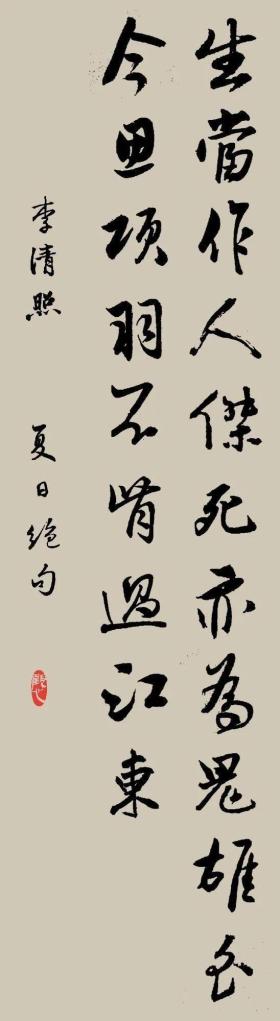 生當作人傑死亦為鬼雄至
今思項羽不肯過江東
李清照 夏日絕句